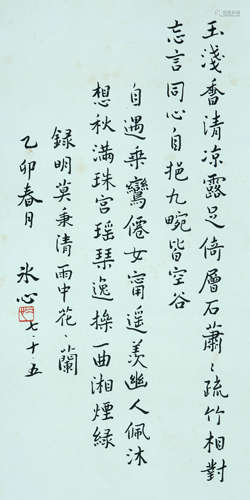 玉淺香清涼露足倚層石蕭〻疏竹相對
忘言同心自挹九畹皆空谷
自遇乘鸞僊女甯遥羨幽人佩沐
想秋滿珠宮瑶琹逸操一曲湘煙綠
録明莫秉清雨中花〻蘭
乙卯春月 冰心 七十五